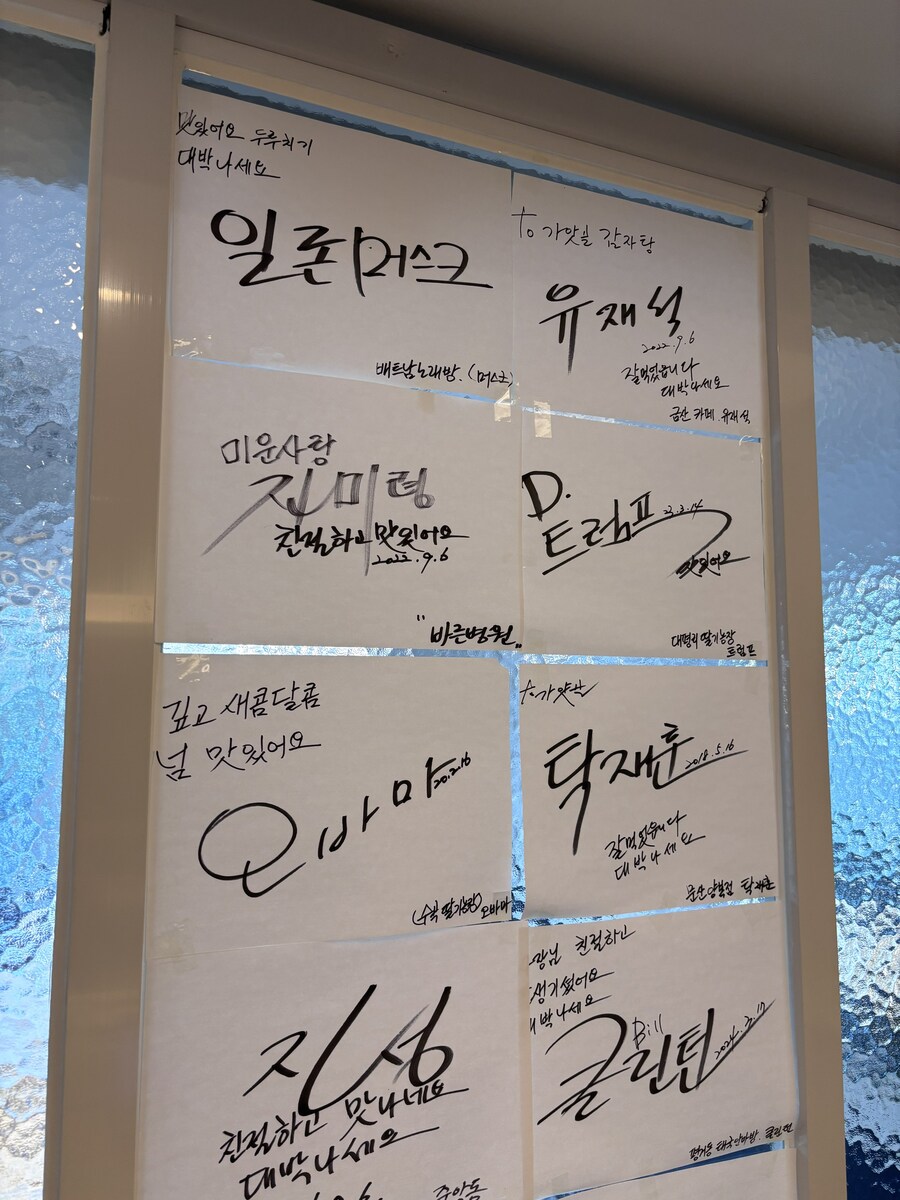 맛있어요 두루치기
대박나세요
일론 머스크
배트남노래방. (머스크)
to 가앗골 감자탕
유재석
2022.9.6
잘먹었습니다
대박나세요
금산 카페. 유재석
미운사랑
진미령
친절하고 맛있어요
2022.9.6
"바른병원"
D.
트럼프 23.3.14
맛있어요
대평리 딸기농장
트럼프
깊고 새콤달콤
넘 맛있어요
오바마 20.2.16
(수곡 딸기농장) 오바마
to
탁재훈 2018.5.16
잘먹었습니다
대박나세요
문산 탁재훈
장님 친절하고
생기셨어요
대박나세요
Bill
클린턴
태국 클린턴
진성
친절하고 맛나네요
대박나세요
중앙동